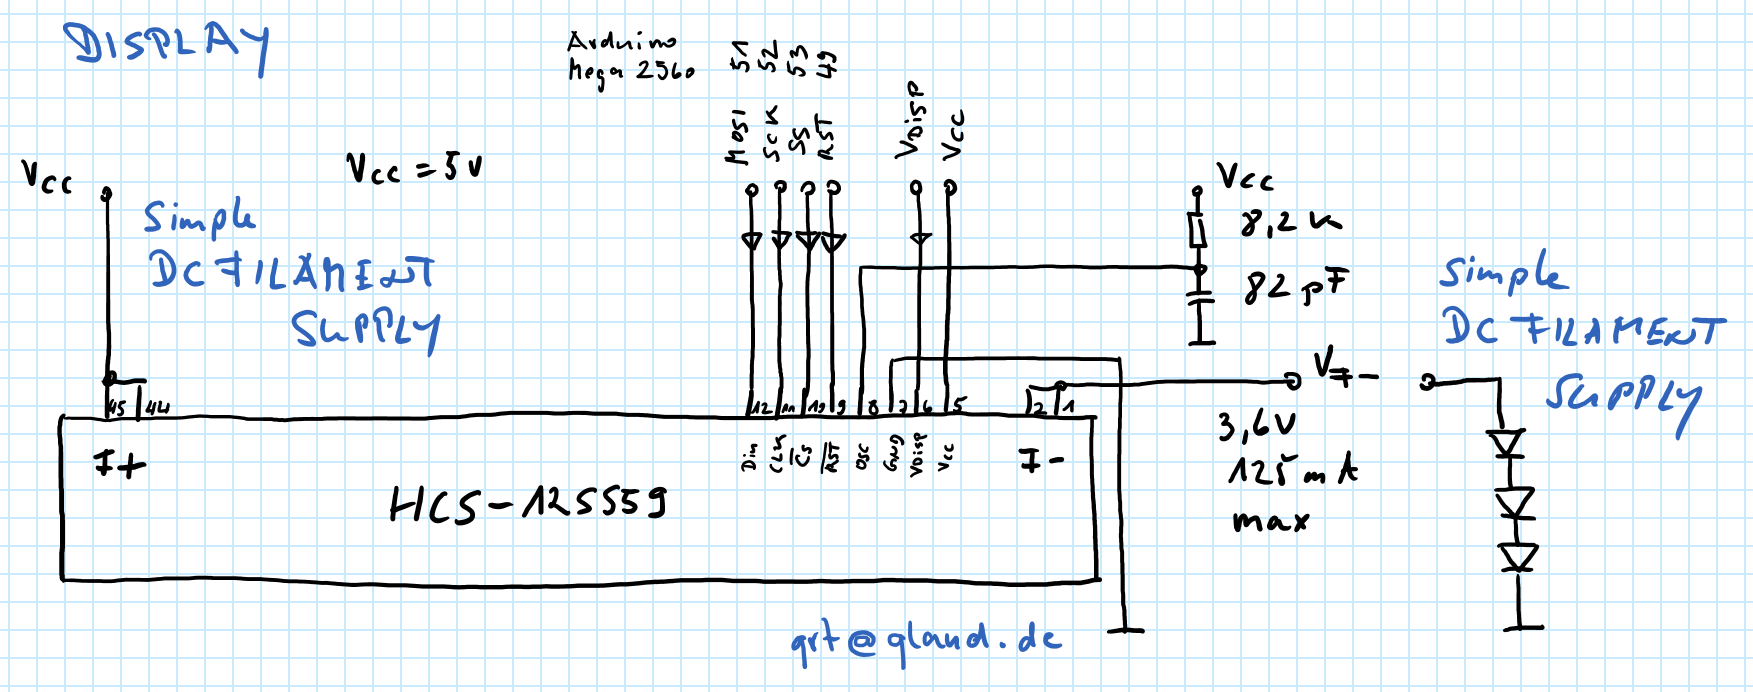 DISPLAY
Arduino
Mega 2560
51
52
53
49
MOSI
SCK
SS
RST
VDISP
VCC
VCC
VCC = 5V
Simple
DC FILAMENT
SUPPLY
VCC
8,2 k
82 pF
Simple
DC FILAMENT
SUPPLY
VF-
3,6V
125 mA
max
45
44
12
11
10
9
8
7
6
5
2
1
F+
Din
CLK
/CS
/RST
OSC
GND
VDISP
VCC
F-
HCS-12SS59
grt@qland.de